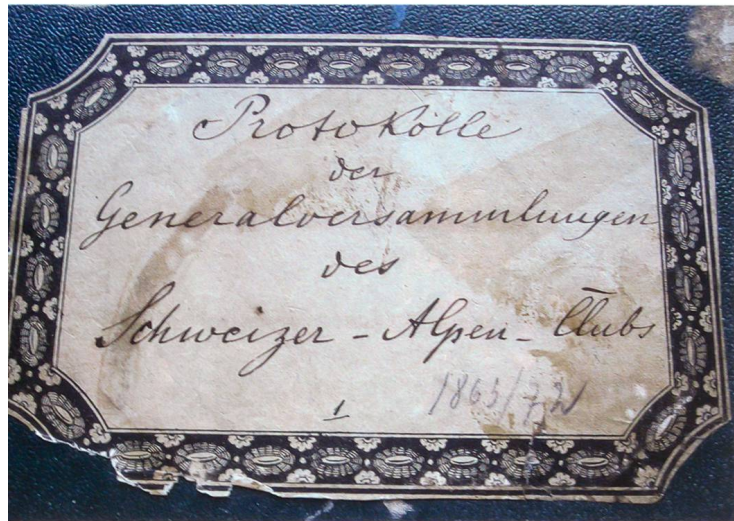 Protokolle
der
Generalversammlungen
des
Schweizer - Alpen - Clubs
1863/72
1